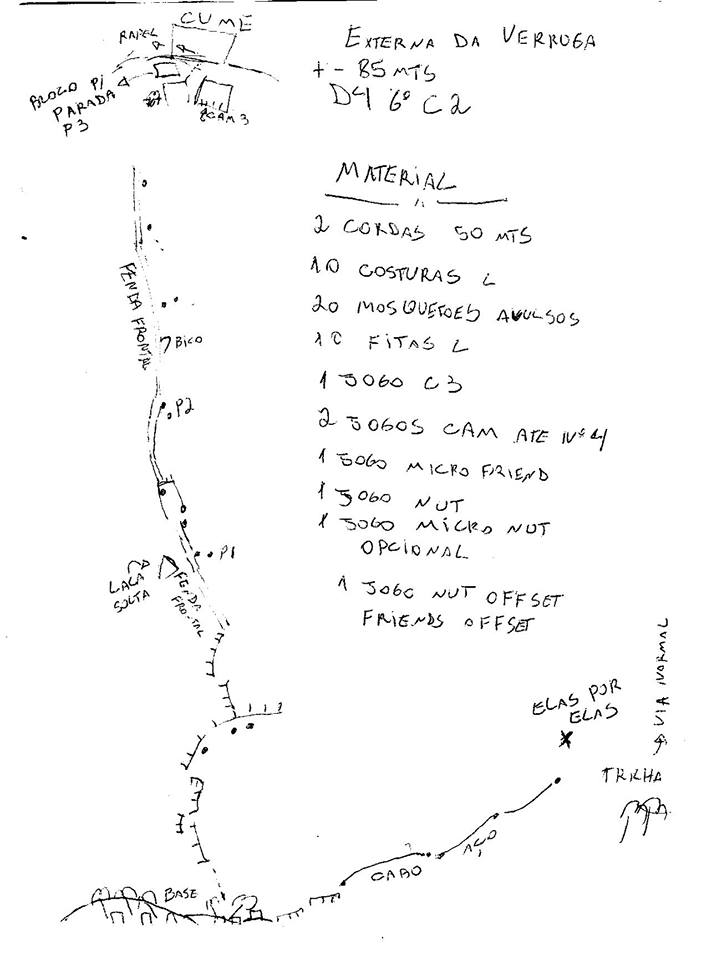 CUME
RAPEL
BLOCO P/
PARADA
P3
CAM 3
EXTERNA DA VERRUGA
+- 85 MTS
D4 6º C2
MATERIAL
2 CORDAS 50 MTS
10 COSTURAS L
20 MOSQUETOES AVULSOS
10 FITAS L
1 JOGO C3
2 JOGOS CAM ATE Nº 4
1 JOGO MICRO FRIEND
1 JOGO NUT
1 JOGO MICRO NUT
OPCIONAL
1 JOGO NUT OFFSET
FRIENDS OFFSET
FENDA FRONTAL
BICO
P2
P1
LACA
SOLTA
FENDA
FRONTAL
ELAS POR
ELAS
VIA NORMAL
TRILHA
CABO
AÇO
BASE